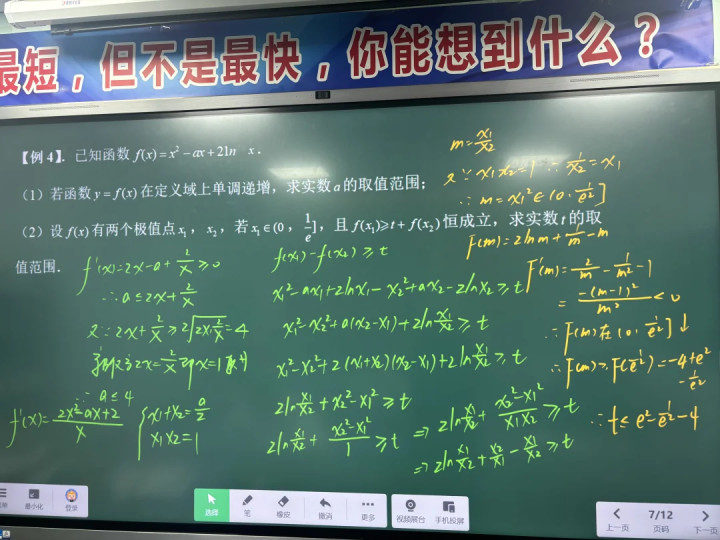 最短，但不是最快，你能想到什么？
【例 4】. 已知函数 f(x) = x² − ax + 21n x .
（1）若函数 y = f(x) 在定义域上单调递增，求实数 a 的取值范围；
（2）设 f(x) 有两个极值点 x₁ ， x₂ ，若 x₁ ∈ (0 , 1/e ]，且 f(x₁) ⩾ t + f(x₂) 恒成立，求实数 t 的取
值范围．
f'(x) = 2x − a + 2/x ≥ 0
∴ a ≤ 2x + 2/x
又∵ 2x + 2/x ≥ 2√(2x·2/x) = 4
2x = 2/x 即 x = 1
∴ a ≤ 4
f'(x) = (2x² − ax + 2)/x
{ x₁ + x₂ = a/2
x₁x₂ = 1
f(x₁) − f(x₂) ≥ t
x₁² − ax₁ + 2lnx₁ − x₂² + ax₂ − 2lnx₂ ≥ t
x₁² − x₂² + a(x₂ − x₁) + 2ln x₁/x₂ ≥ t
x₁² − x₂² + 2(x₁ + x₂)(x₂ − x₁) + 2ln x₁/x₂ ≥ t
2ln x₁/x₂ + x₂² − x₁² ≥ t
2ln x₁/x₂ + (x₂² − x₁²)/1 ≥ t
⇒ 2ln x₁/x₂ + (x₂² − x₁²)/(x₁x₂) ≥ t
⇒ 2ln x₁/x₂ + x₂/x₁ − x₁/x₂ ≥ t
m = x₁/x₂
又∵ x₁x₂ = 1 ∴ 1/x₂ = x₁
∴ m = x₁² ∈ (0, 1/e²]
F(m) = 2lnm + 1/m − m
F'(m) = 2/m − 1/m² − 1
= −(m−1)²/m² < 0
∴ F(m) 在 (0, 1/e²] ↓
∴ F(m) ≥ F(1/e²) = −4 + e²
− 1/e²
∴ t ≤ e² − 1/e² − 4
最小化
登录
选择
笔
橡皮
撤消
更多
视频展台
手机投屏
上一页
7/12
页码
下一页